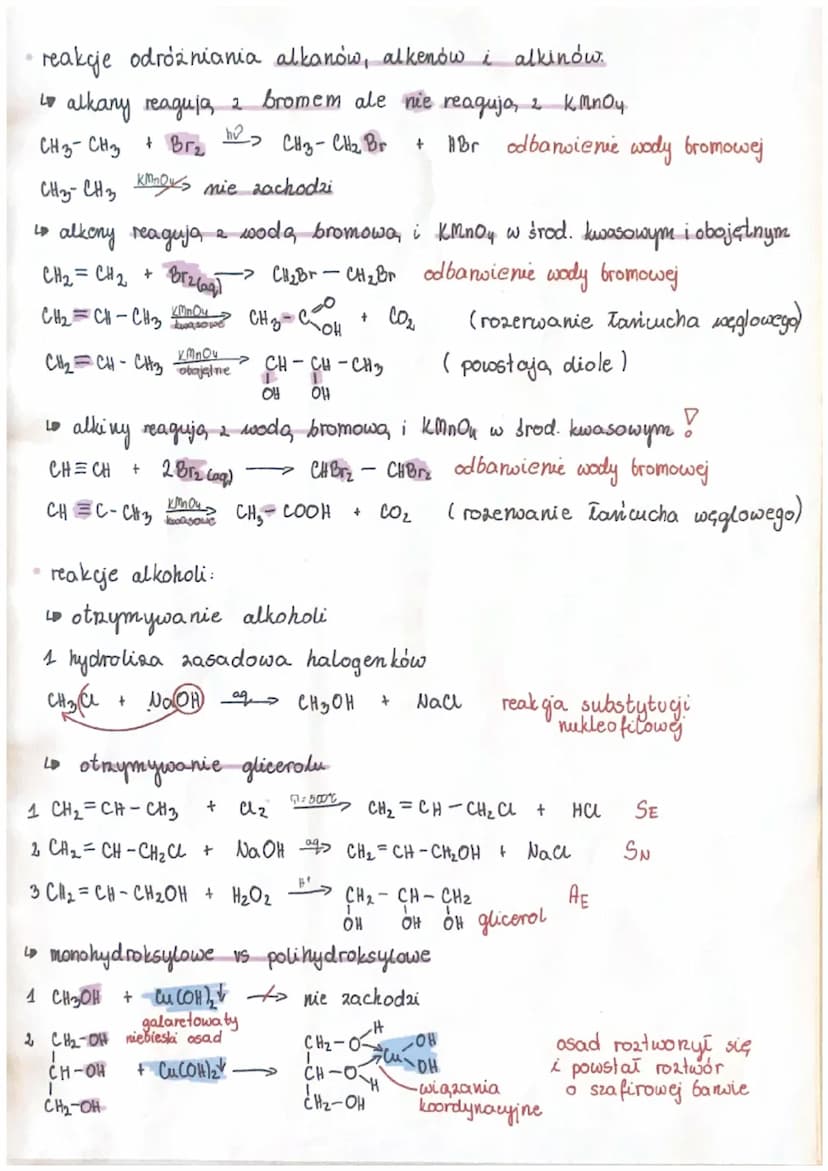 • reakcje odróżniania alkanów, alkenów i alkinów.
↳ alkany reagują z bromem ale nie reagują z KMnO4
CH3-CH3 + Br2 hν→ CH3-CH2Br + HBr odbarwienie wody bromowej
CH3-CH3 KMnO4→ nie zachodzi
↳ alkeny reagują z wodą bromową i KMnO4 w środ. kwasowym i obojętnym
CH2=CH2 + Br2(aq) → CH2Br-CH2Br odbarwienie wody bromowej
CH2=CH-CH3 KMnO4 kwasowe→ CH3-C=O OH + CO2 (rozerwanie łańcucha węglowego)
CH2=CH-CH3 KMnO4 obojętne→ CH-CH-CH3 (powstają diole)
OH OH
↳ alkiny reagują z wodą bromową i KMnO4 w środ. kwasowym!
CH≡CH + 2Br2(aq) → CHBr2-CHBr2 odbarwienie wody bromowej
CH≡C-CH3 KMnO4 kwasowe→ CH3-COOH + CO2 (rozerwanie łańcucha węglowego)
• reakcje alkoholi:
↳ otrzymywanie alkoholi
1 hydroliza zasadowa halogenków
CH3Cl + NaOH aq→ CH3OH + NaCl reakcja substytucji
nukleofilowej
↳ otrzymywanie glicerolu
1 CH2=CH-CH3 + Cl2 T=500°C→ CH2=CH-CH2Cl + HCl SE
2 CH2=CH-CH2Cl + NaOH aq→ CH2=CH-CH2OH + NaCl SN
3 CH2=CH-CH2OH + H2O2 H+→ CH2-CH-CH2 AE
OH OH OH glicerol
↳ monohydroksylowe vs polihydroksylowe
1 CH3OH + Cu(OH)2↓ ↛ nie zachodzi
galaretowaty
niebieski osad
2 CH2-OH CH2-O H OH osad roztworzył się
CH-OH + Cu(OH)2↓ → CH-O H Cu OH i powstał roztwór
CH2-OH CH2-OH wiązania o szafirowej barwie
koordynacyjne